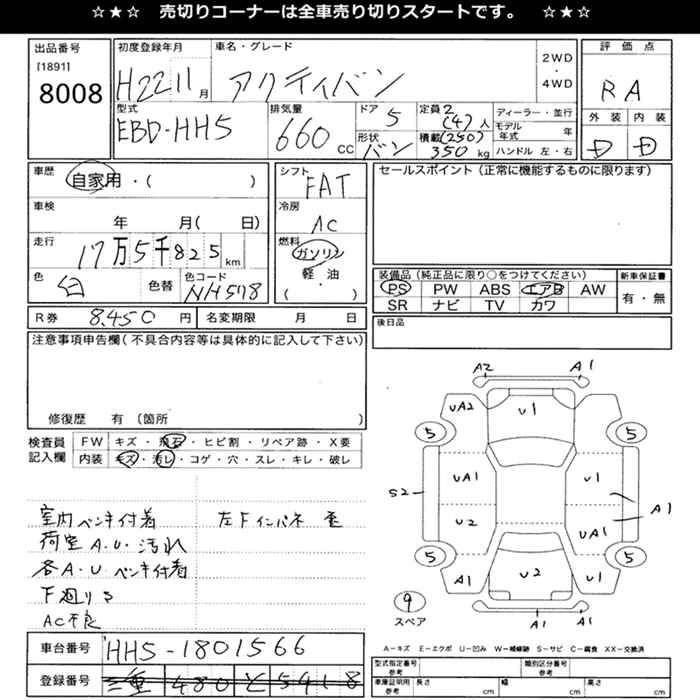 ☆★☆ 売切りコーナーは全車売り切りスタートです。 ☆★☆
出品番号 初度登録年月 車名・グレード 2WD・4WD 評価点
[1891] 8008 H22 11月 アクティバン RA
型式 排気量 ドア 定員 ディーラー・並行 外装 内装
EBD-HH5 660cc 5 2(4)人 モデル年式 年 D D
形状 バン 積載 (250) 350kg ハンドル 左・右
車歴 自家用・( ) シフト FAT セールスポイント(正常に機能するものに限ります)
車検 年 月( 日) 冷房 AC
走行 17万5千825km 燃料 ガソリン 軽油 ・ ( )
色 白 色替 色コード NH578
装備品(純正品に限り○をつけてください) 新車保証書
PS PW ABS エアB AW 有・無
SR ナビ TV カワ
R券 8,450円 名変期限 月 日 後日品
注意事項申告欄(不具合内容等は具体的に記入して下さい)
修復歴 有 (箇所 )
検査員記入欄 FW キズ・飛石・ヒビ割・リペア跡・X要
内装 キズ・汚レ・コゲ・穴・スレ・キレ・破レ
室内ペンキ付着 左Fインパネ
荷室A.U.汚れ
各A.U ペンキ付着
下廻りS
AC不良
車台番号 HH5-1801566
登録番号 三重 480 と 5918
A2 A1
UA2 U1
5 5
UA1 U1
S2 A1
U2 UA1
5 5
A1 U2 U1
9 スペア
A1 A1
A-キズ E-エクボ U-凹み W-補修跡 S-サビ C-腐食 XX-交換済
型式指定番号 参考 類別区分番号 参考
車庫証明用 参考 長さ cm 幅 cm 高さ cm